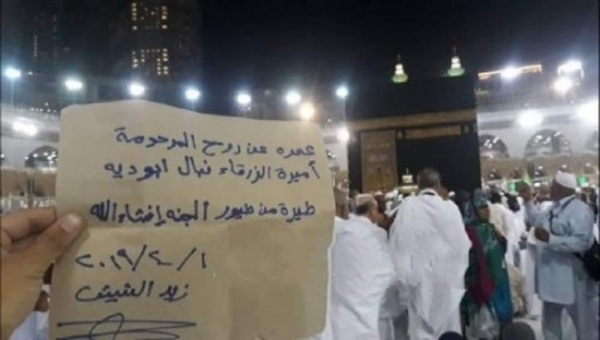 عمره عن روح المرحومة
أميرة الزرقاء نبال ابوديه
طيرة من طيور الجنه إنشاءالله
٢٠١٩/٤/١
زيد الشيش